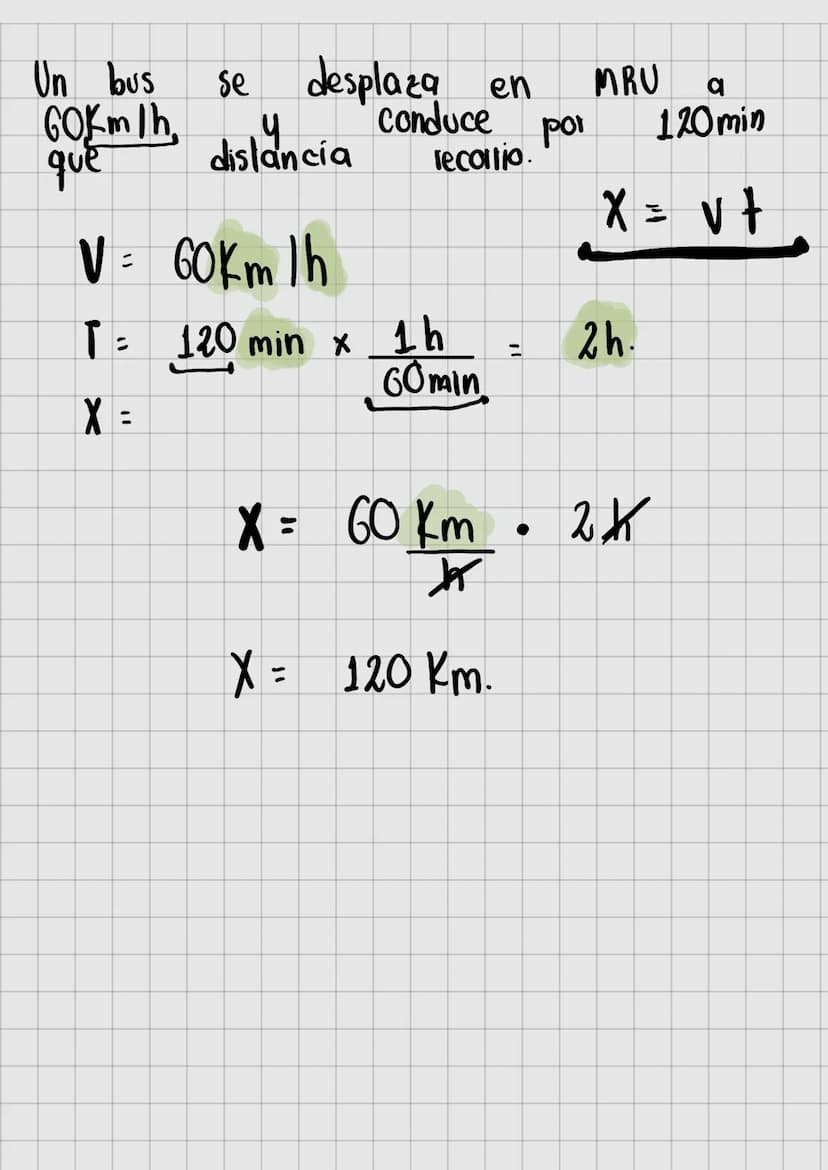 Un bus se desplaza en MRU a
60Km/h, y conduce por 120min
que distáncia recorrio.
X = vt
V = 60Km/h
T = 120 min x 1h/60min = 2h.
X =
X = 60 Km/h · 2h
X = 120 Km.